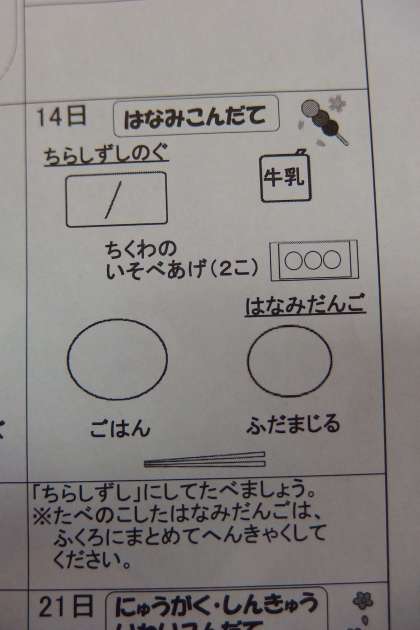 14日 はなみこんだて
ちらしずしのぐ
牛乳
ちくわの
いそべあげ(2こ)
はなみだんご
ごはん
ふだまじる
「ちらしずし」にしてたべましょう。
※たべのこしたはなみだんごは、
ふくろにまとめてへんきゃくして
ください。
21日 にゅうがく・しんきゅう
いわいこんだて